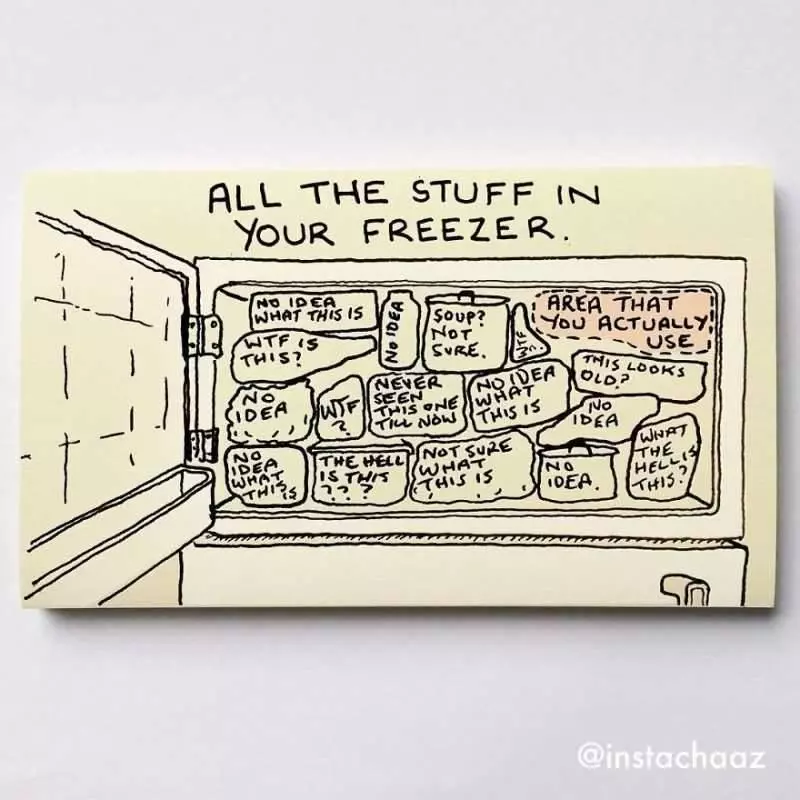 ALL THE STUFF IN
YOUR FREEZER.
NO IDEA
WHAT THIS IS
NO IDEA
SOUP?
NOT
SURE.
WTF
IS?
AREA THAT
YOU ACTUALLY
USE
WTF IS
THIS?
THIS LOOKS
OLD?
NO
IDEA
WTF
?
NEVER
SEEN
THIS ONE
TILL NOW
NO IDEA
WHAT
THIS IS
NO
IDEA
WHAT
THE
HELL IS
THIS?
NO
IDEA
WHAT
THIS IS
THE HELL
IS THIS
? ? ?
NOT SURE
WHAT
THIS IS
NO
IDEA.
@instachaaz